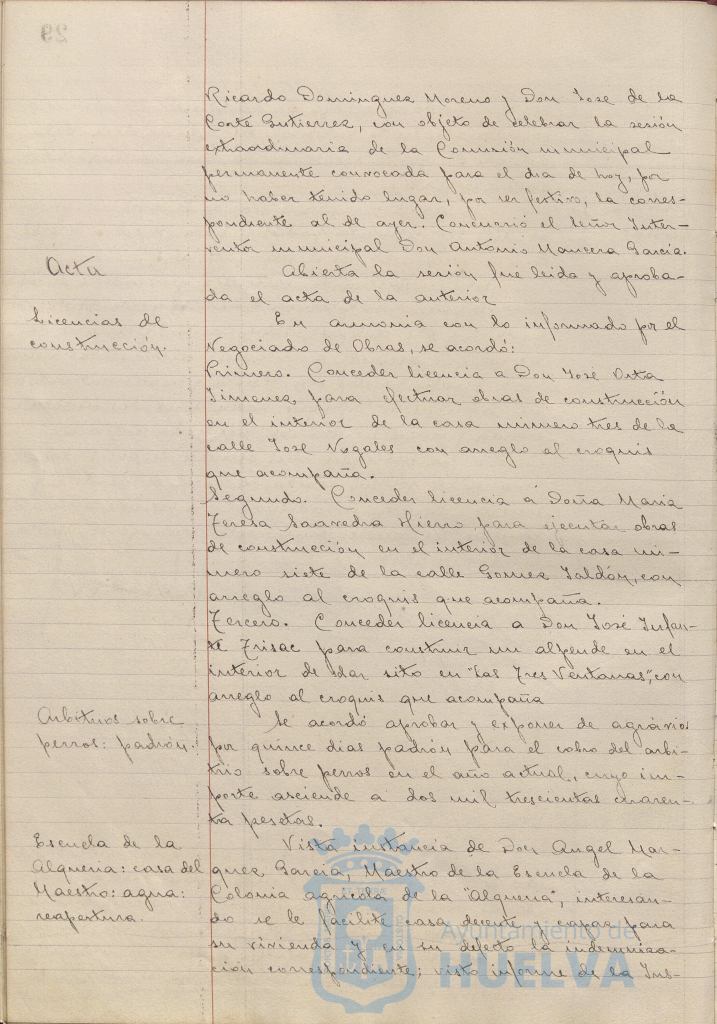 Ricardo Dominguez Moreno y Don Jose de la
Corte Gutierrez, con objeto de celebrar la sesión
extraordinaria de la Comisión municipal
permanente convocada para el dia de hoy, por
no haber tenido lugar, por ser festivo, la corres-
pondiente al de ayer. Concurrió el Señor Inter-
ventor municipal Don Antonio Mancera García.
Acta
Abierta la sesión fue leida y aproba-
da el acta de la anterior
Licencias de
construcción.
En armonia con lo informado por el
Negociado de Obras, se acordó:
Primero. Conceder licencia a Don José Orta
Jimenez, para efectuar obras de construcción
en el interior de la casa número tres de la
calle José Nogales con arreglo al croquis
que acompaña.
Segundo. Conceder licencia a Doña Maria
Teresa Saavedra Hierro para ejecutar obras
de construcción en el interior de la casa nú-
mero siete de la calle Gomez Jaldón, con
arreglo al croquis que acompaña.
Tercero. Conceder licencia a Don José Infan-
te Trisac para construir un alpende en el
interior de solar sito en "Las Tres Ventanas", con
arreglo al croquis que acompaña
Arbitrios sobre
perros: padrón.
Se acordó aprobar y exponer de agravios
por quince dias padrón para el cobro del arbi-
trio sobre perros en el año actual, cuyo im-
porte asciende a dos mil trescientas cuaren-
ta pesetas.
Escuela de la
Alqueria: casa del
Maestro: agua:
reapertura.
Vista instancia de Don Angel Mar-
quez Garcia, Maestro de la Escuela de la
Colonia agricola de la "Alqueria", interesan-
do se le facilite casa decente y capaz para
su vivienda y en su defecto la indemniza-
ción correspondiente; visto informe de la Ins-
Ayuntamiento de
HUELVA